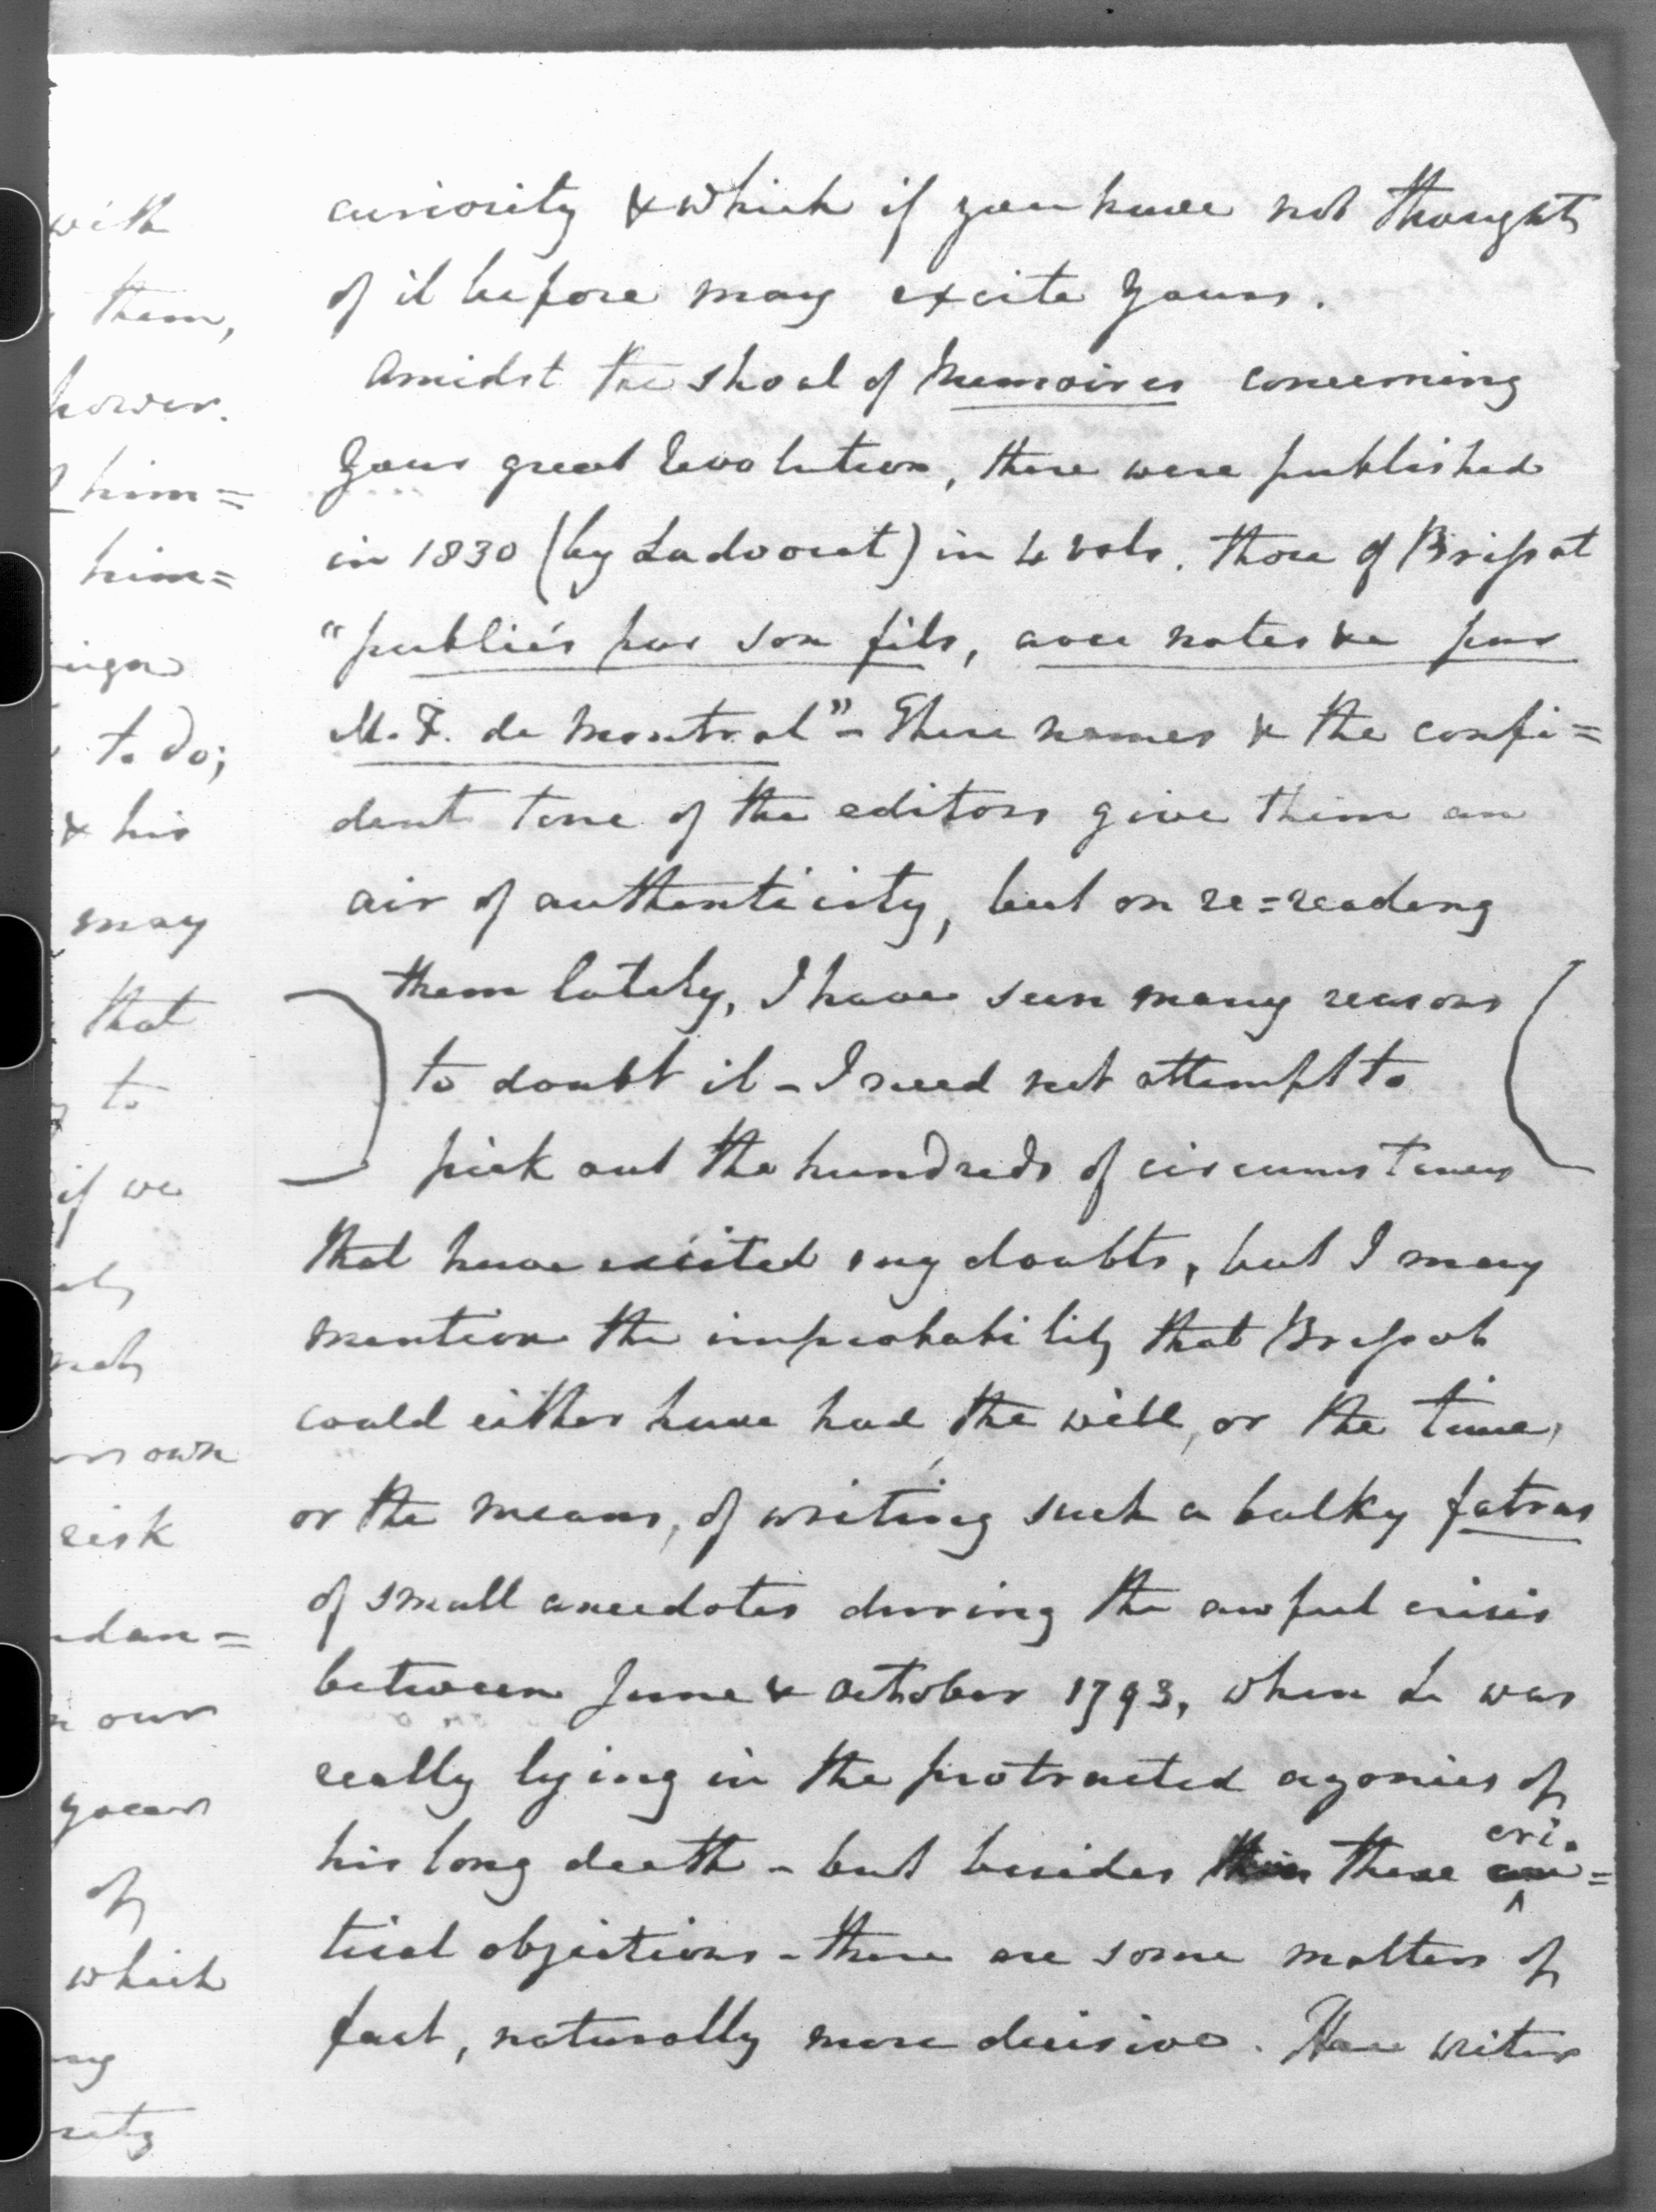 curiosity & which if you have not thought
of it before may excite yours.
Amidst the shoal of Memoires concerning
your great Revolution, there were published
in 1830 (by Ladvocat) in 4 vols. those of Brissot
"publiés par son fils, avec notes &c par
M. F. de Montrol" - These names & the confi=
dent tone of the editors give them an
air of authenticity, but on re=reading
them lately, I have seen many reasons
to doubt it - I need not attempt to
pick out the hundreds of circumstances
that have excited my doubts, but I may
mention the improbability that Brissot
could either have had the will, or the time,
or the means, of writing such a bulky fatras
of small anecdotes during the awful crisis
between June & October 1793, when he was
really lying in the protracted agonies of
his long death - but besides these cri=
tical objections - there are some matters of
fact, naturally more decisive. The writer
with
them,
him=
him=
to do;
& his
may
that
to
if we
own
risk
our
of
which